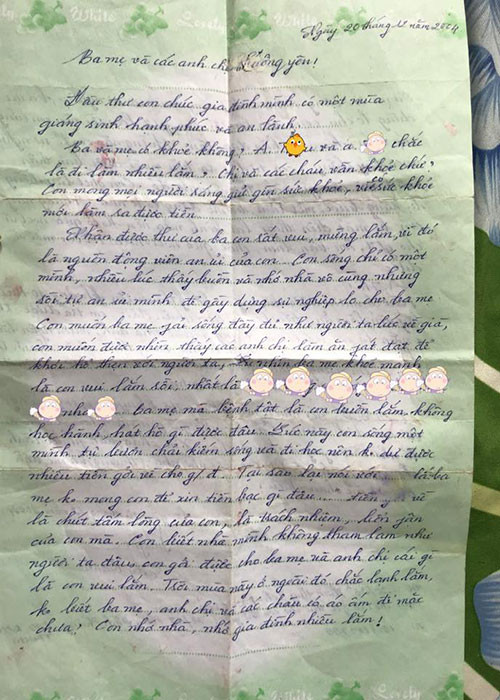 White Lovely
Ngày 20 tháng 11 năm 2004
Ba mẹ và các anh chị thương yêu!
Đầu thư con chúc gia đình mình có một mùa
giáng sinh hạnh phúc và an lành.
Ba và mẹ có khỏe không? A. và a chắc
là đi làm nhiều lắm? Chị và các cháu vẫn khỏe chứ?
Con mong mọi người sống giữ gìn sức khỏe, vì có sức khỏe
mới làm ra được tiền.
Nhận được thư của ba con rất vui, mừng lắm, vì đó
là nguồn động viên an ủi của con... Con sống chỉ có một
mình, nhiều lúc thấy buồn và nhớ nhà vô cùng nhưng
rồi tự an ủi mình để gây dựng sự nghiệp lo cho ba mẹ
Con muốn ba mẹ fải sống đầy đủ như người ta lúc về già,
con muốn được nhìn thấy các anh chị làm ăn fát đạt để
khỏi hổ thẹn với người ta, nhìn ba mẹ khỏe mạnh
là con vui lắm rồi, nhất là
nhỏ. Ba mẹ mà bệnh tật là con buồn lắm, không
học hành, hát hò gì được đâu. Lúc này con sống một
mình tự bươn chải kiếm sống và đi học nên k dư được
nhiều tiền gởi về cho g/đ. Tại sao lại nói với là ba
mẹ k mong con để xin tiền bạc gì đâu tiền gởi về
là chút tấm lòng của con, là trách nhiệm, bổn fận
của con mà. Con biết nhà mình không tham lam như
người ta đâu, con gởi được cho ba mẹ và anh chị cái gì
là con vui lắm. Trời mùa này ở ngoài đó chắc lạnh lắm,
ko biết ba mẹ, anh chị và các cháu có áo ấm để mặc
chưa? Con nhớ nhà, nhớ gia đình nhiều lắm!
White Lovely